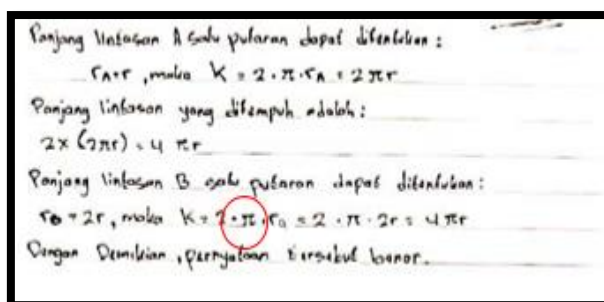 Panjang lintasan A satu putaran dapat ditentukan :
rA=r, maka K = 2 · π · rA = 2πr
Panjang lintasan yang ditempuh adalah :
2x (2πr) = 4 πr
Panjang lintasan B satu putaran dapat ditentukan :
rB = 2r, maka K = 2 · π · rB = 2 · π · 2r = 4πr
Dengan Demikian, pernyataan tersebut benar.